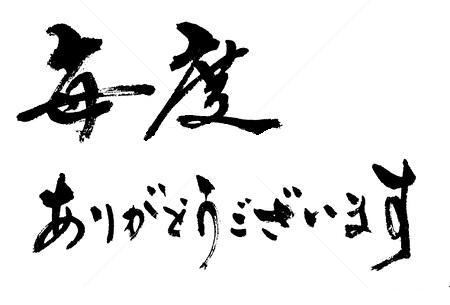 毎度
ありがとうございます